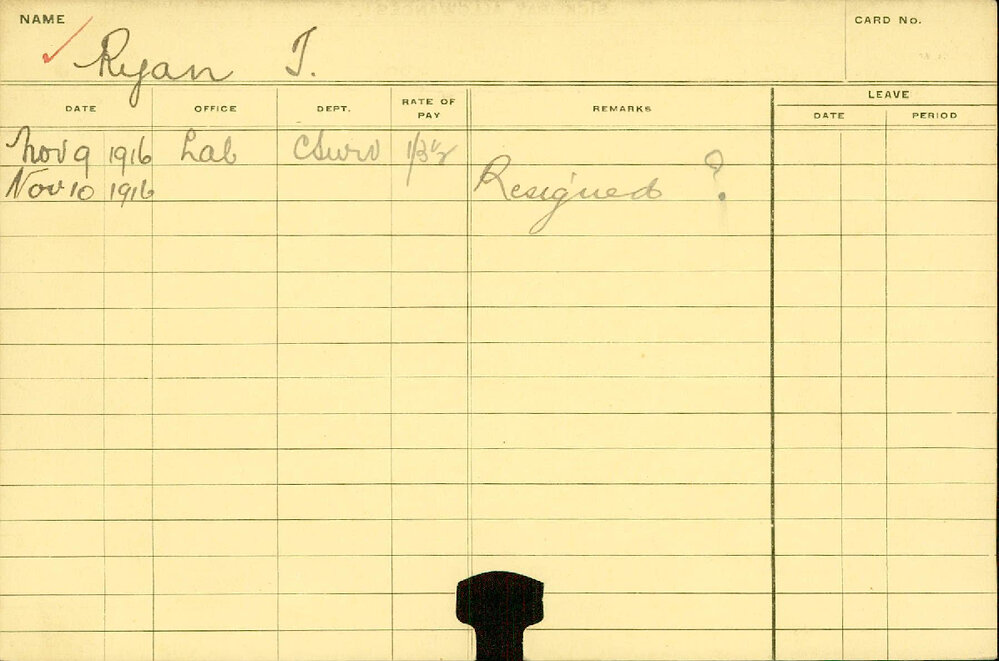 NAME
CARD No.
Ryan T.
DATE OFFICE DEPT. RATE OF PAY REMARKS LEAVE
DATE PERIOD
Nov 9 1916 Lab CSurv 1/3½
Nov 10 1916 Resigned ?